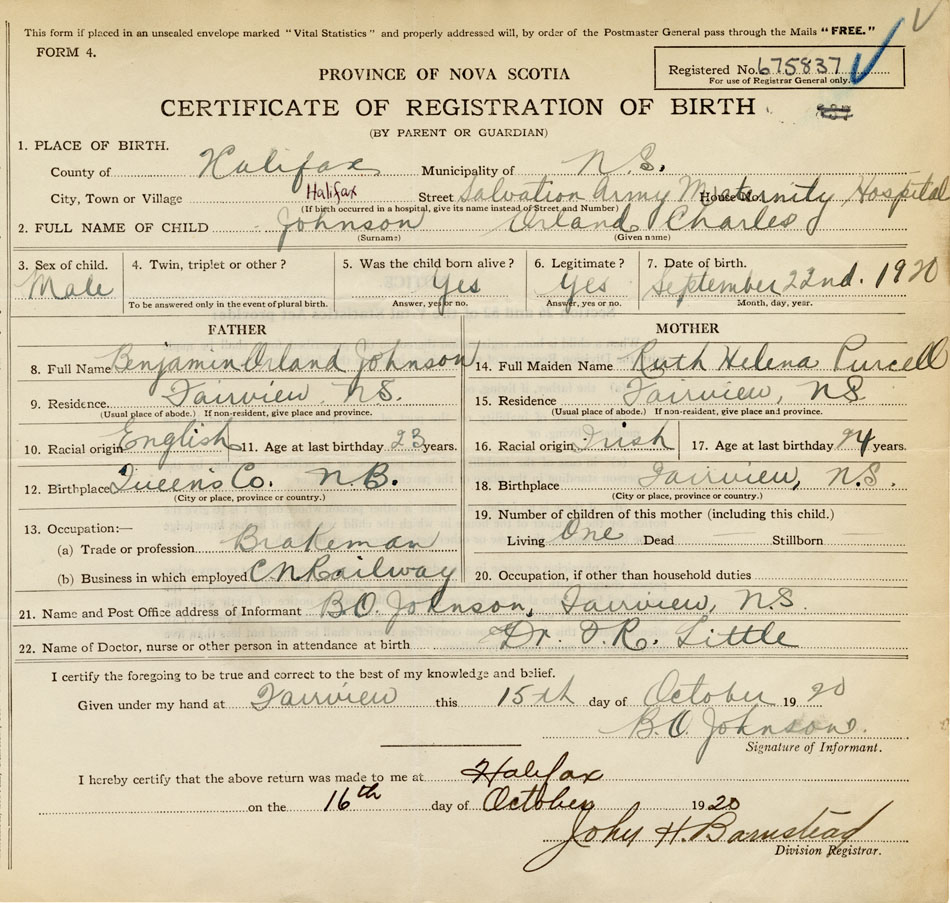 This form if placed in an unsealed envelope marked "Vital Statistics" and properly addressed will, by order of the Postmaster General pass through the Mails "FREE."
FORM 4.
Registered No. 675837
For use of Registrar General only.
PROVINCE OF NOVA SCOTIA
CERTIFICATE OF REGISTRATION OF BIRTH
(BY PARENT OR GUARDIAN)
1. PLACE OF BIRTH.
County of Halifax Municipality of N.S.
City, Town or Village Halifax Street Salvation Army Maternity Hospital House No.
(If birth occurred in a hospital, give its name instead of Street and Number)
2. FULL NAME OF CHILD Johnson Orland Charles
(Surname) (Given name)
3. Sex of child. 4. Twin, triplet or other? 5. Was the child born alive? 6. Legitimate? 7. Date of birth.
Male Yes Yes September 22nd. 1920
To be answered only in the event of plural birth. Answer, yes or no. Answer, yes or no. Month, day, year.
FATHER
8. Full Name Benjamin Orland Johnson
9. Residence Fairview N.S.
(Usual place of abode.) If non-resident, give place and province.
10. Racial origin English 11. Age at last birthday 23 years.
12. Birthplace Queens Co. N.B.
(City or place, province or country.)
13. Occupation:—
(a) Trade or profession Brakeman
(b) Business in which employed C N Railway
MOTHER
14. Full Maiden Name Ruth Helena Purcell
15. Residence Fairview, N S
(Usual place of abode.) If non-resident, give place and province.
16. Racial origin Irish 17. Age at last birthday 24 years.
18. Birthplace Fairview, N.S.
(City or place, province or country.)
19. Number of children of this mother (including this child.)
Living One Dead — Stillborn —
20. Occupation, if other than household duties
21. Name and Post Office address of Informant B.O. Johnson, Fairview, N.S.
22. Name of Doctor, nurse or other person in attendance at birth Dr. F.R. Little
I certify the foregoing to be true and correct to the best of my knowledge and belief.
Given under my hand at Fairview this 15th day of October 1920
B.O. Johnson.
Signature of Informant.
I hereby certify that the above return was made to me at Halifax
on the 16th day of October 1920
John H. Barnstead
Division Registrar.